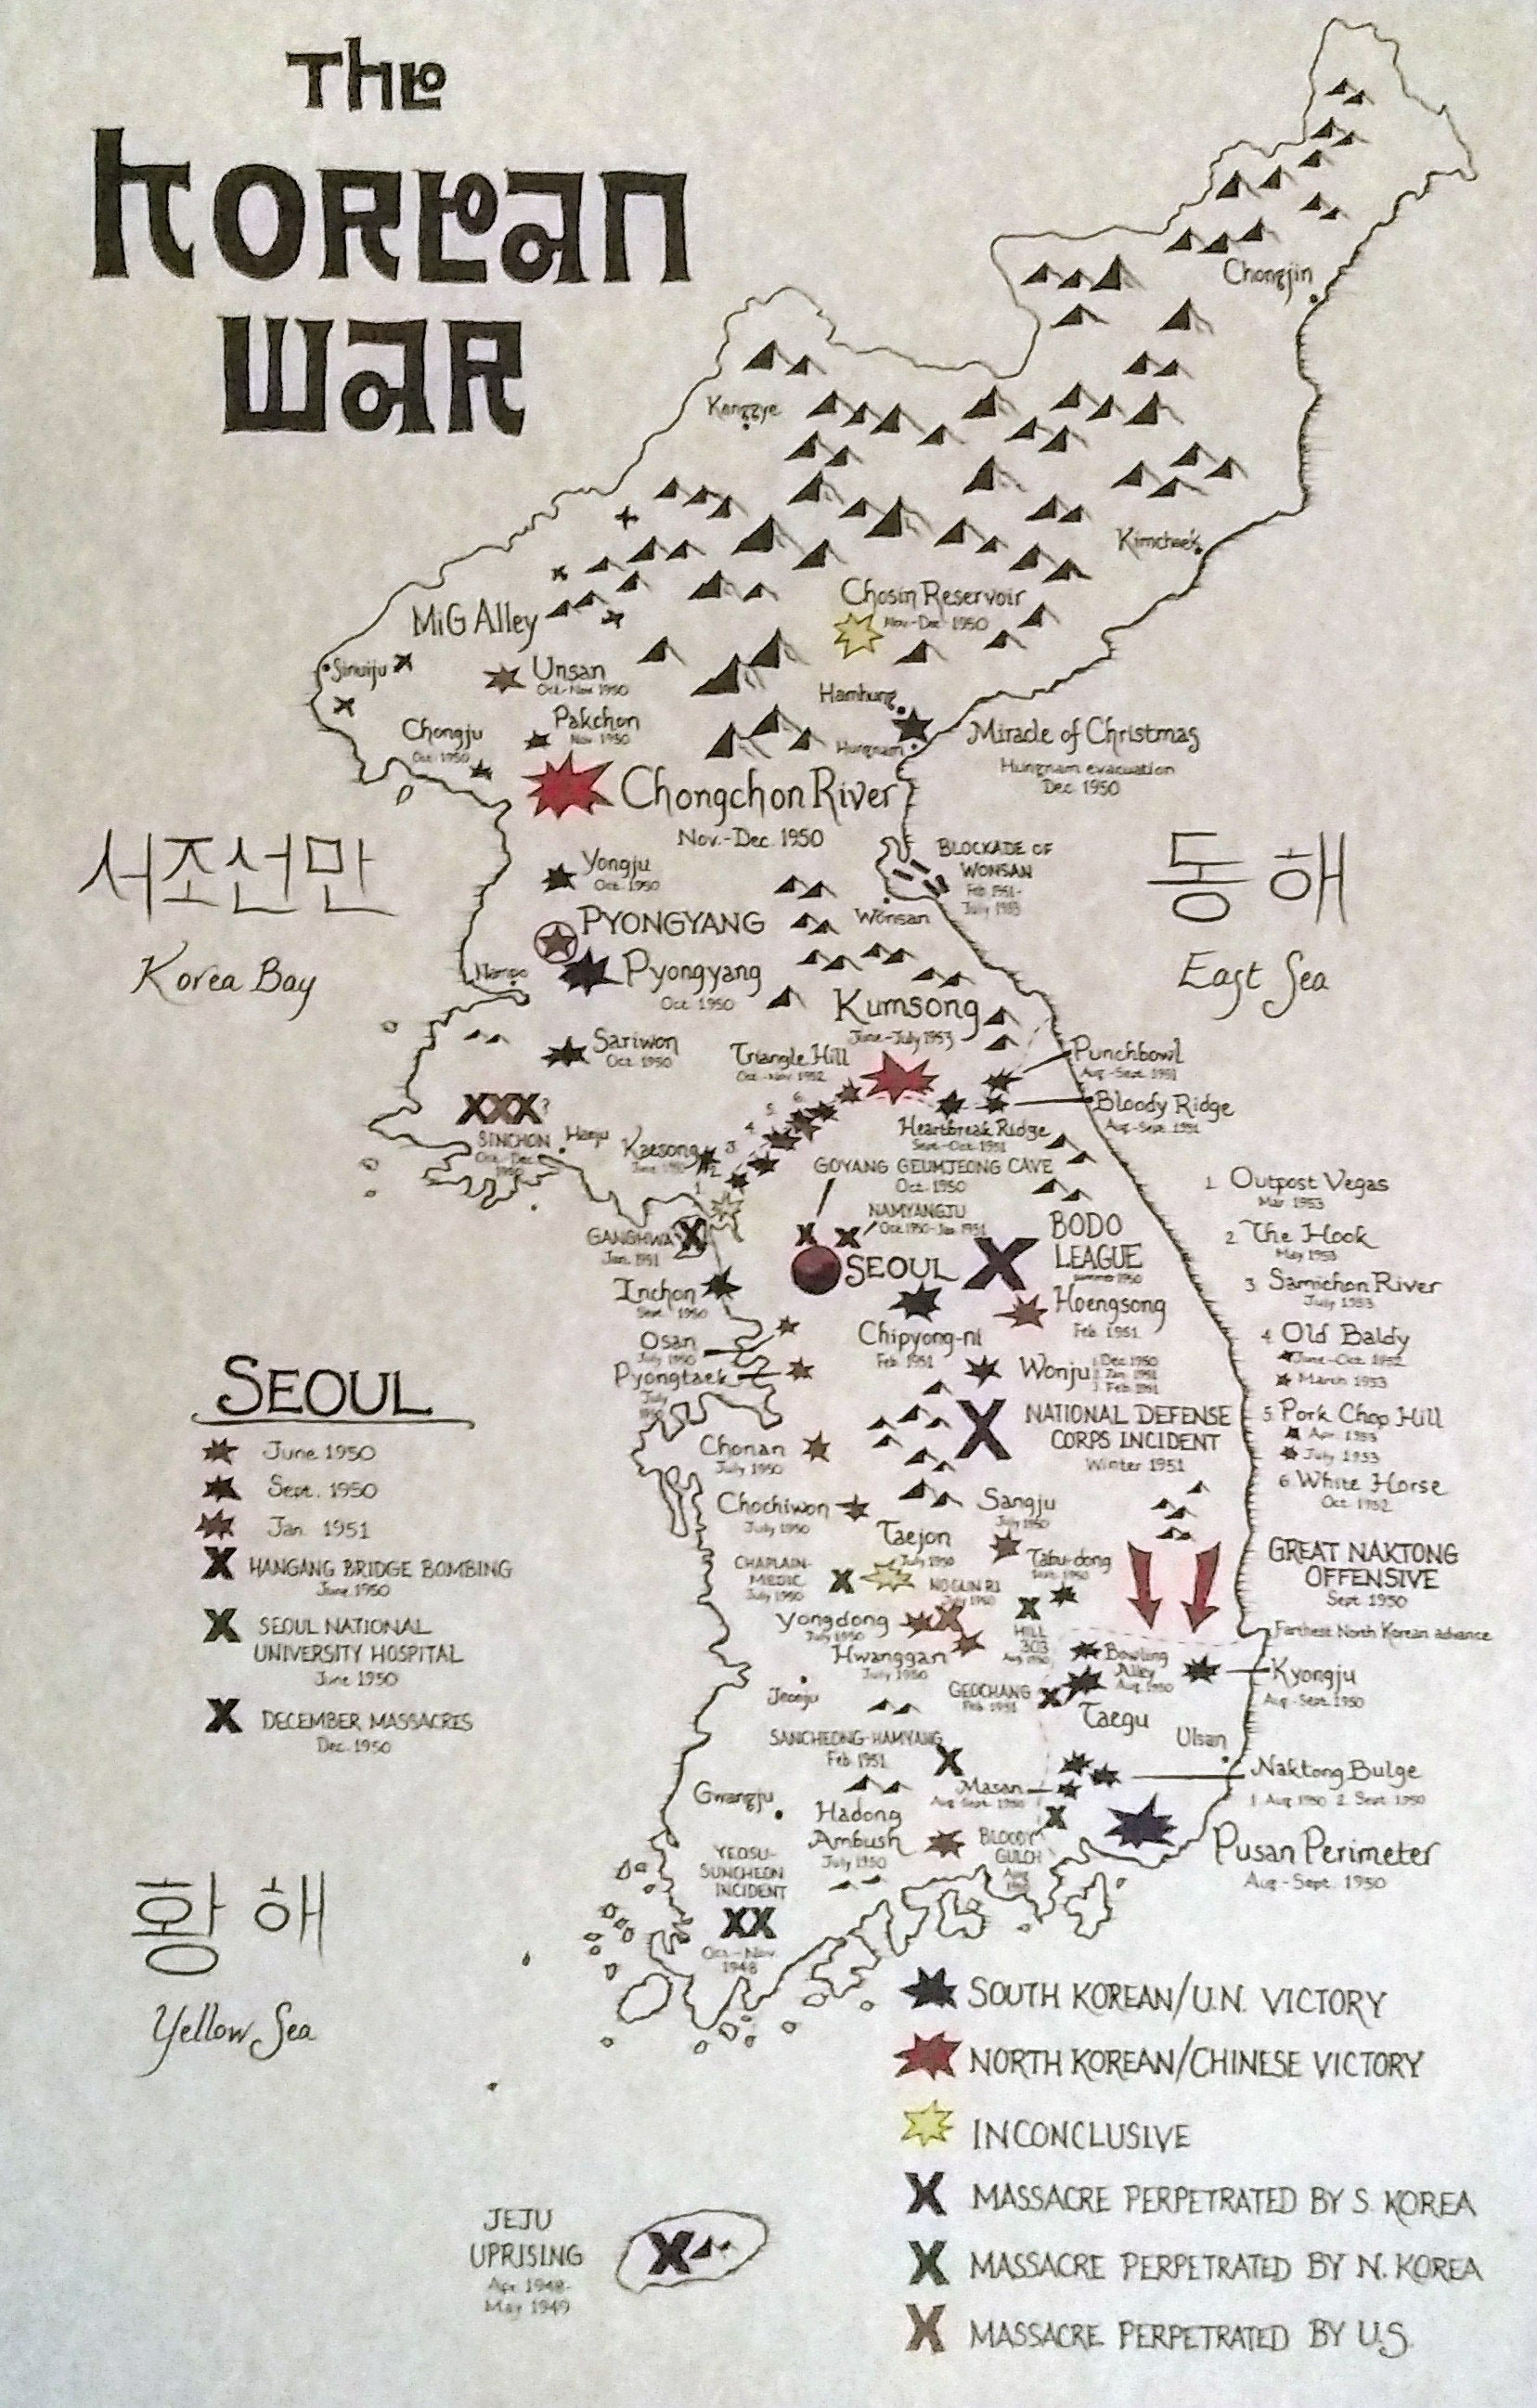 The
Korean
War
Chongjin
Kanggye
Kimchaek
Chosin Reservoir
Nov-Dec 1950
MiG Alley
Sinuiju
Unsan
Oct-Nov 1950
Hamhung
Pakchon
Nov 1950
Chongju
Oct 1950
Hungnam
Miracle of Christmas
Hungnam evacuation
Dec. 1950
Chongchon River
Nov.-Dec. 1950
서조선만
Korea Bay
동해
East Sea
BLOCKADE OF
WONSAN
Feb 1951-
July 1953
Yongju
Oct. 1950
Wonsan
PYONGYANG
Pyongyang
Oct. 1950
Nampo
Kumsong
June-July 1953
Sariwon
Oct. 1950
Triangle Hill
Oct-Nov 1952
Punchbowl
Aug-Sept. 1951
Bloody Ridge
Aug-Sept. 1951
Heartbreak Ridge
Sept-Oct. 1951
6.
5.
4.
3.
2.
1.
XXX?
SINCHON
Oct.-Dec.
1950
Haeju
Kaesong
June 1950
GOYANG GEUMJEONG CAVE
Oct. 1950
NAMYANGJU
Oct 1950-Jan. 1951
GANGHWA
Jan. 1951
SEOUL
BODO
LEAGUE
summer 1950
Inchon
Sept. 1950
Hoengsong
Feb. 1951
Chipyong-ni
Feb. 1951
Osan
July 1950
Pyongtaek
July
1950
Wonju
1. Dec. 1950
2. Jan. 1951
3. Feb. 1951
NATIONAL DEFENSE
CORPS INCIDENT
Winter 1951
1. Outpost Vegas
Mar 1953
2. The Hook
May 1953
3. Samichon River
July 1953
4. Old Baldy
June-Oct. 1952
March 1953
5. Pork Chop Hill
Apr. 1953
July 1953
6. White Horse
Oct. 1952
SEOUL
June 1950
Sept. 1950
Jan. 1951
X HANGANG BRIDGE BOMBING
June 1950
X SEOUL NATIONAL
UNIVERSITY HOSPITAL
June 1950
X DECEMBER MASSACRES
Dec. 1950
Chonan
July 1950
Chochiwon
July 1950
Sangju
July 1950
Taejon
July 1950
CHAPLAIN-
MEDIC
July 1950
NOGUN RI
July 1950
Tabu-dong
Sept. 1950
GREAT NAKTONG
OFFENSIVE
Sept. 1950
Farthest North Korean advance
Yongdong
July 1950
HILL
303
Aug 1950
Hwanggan
July 1950
Bowling
Alley
Aug. 1950
Kyongju
Aug-Sept. 1950
Jeonju
GEOCHANG
Feb. 1951
Taegu
SANCHEONG-HAMYANG
Feb. 1951
Ulsan
Masan
Aug-Sept. 1950
Naktong Bulge
1. Aug 1950 2. Sept. 1950
Gwangju
Hadong
Ambush
July 1950
BLOODY
GULCH
Aug
1950
Pusan Perimeter
Aug-Sept. 1950
YEOSU-
SUNCHEON
INCIDENT
XX
Oct.-Nov.
1948
황해
Yellow Sea
SOUTH KOREAN/U.N. VICTORY
NORTH KOREAN/CHINESE VICTORY
INCONCLUSIVE
X MASSACRE PERPETRATED BY S. KOREA
X MASSACRE PERPETRATED BY N. KOREA
X MASSACRE PERPETRATED BY U.S.
JEJU
UPRISING
Apr. 1948-
May 1949